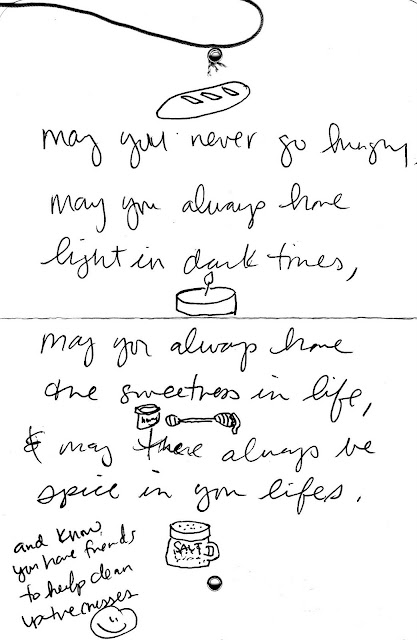 may you never go hungry,
may you always have
light in dark times,
may you always have
the sweetness in life,
honey
& may there always be
spice in you lifes.
SALT
and know
you have friends
to help clean
up the messes